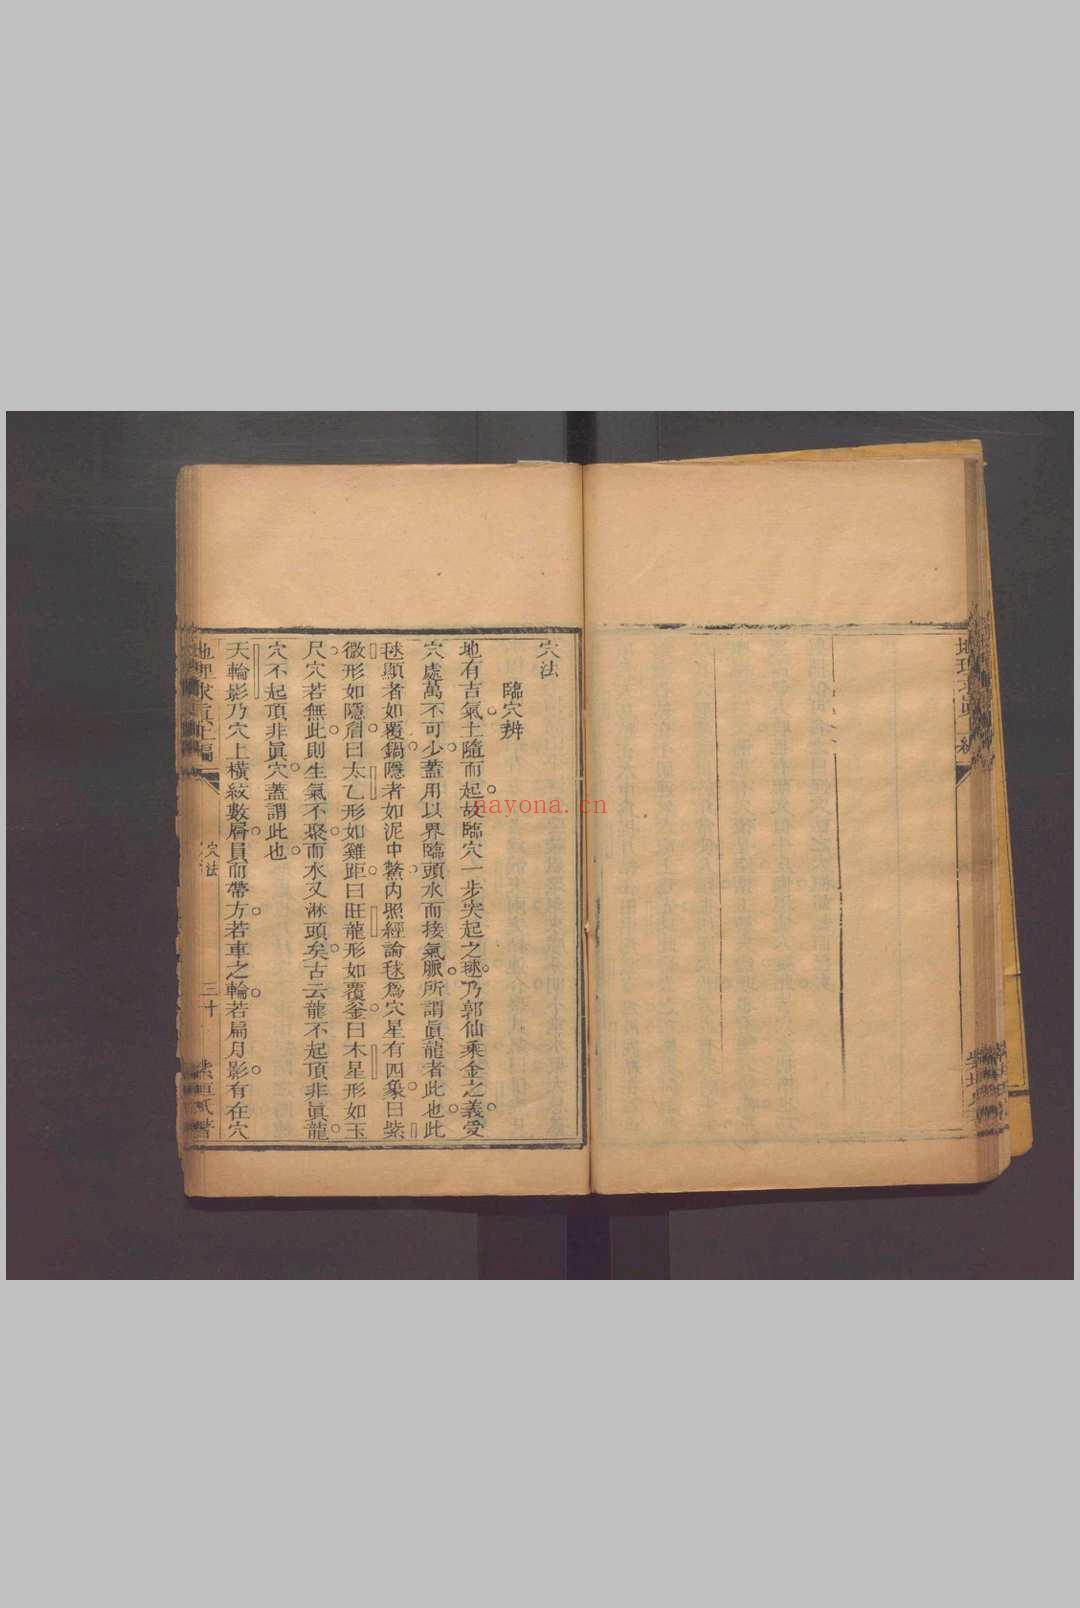 穴法
臨穴辨
地有吉氣土隨而起故臨穴一步突起之毬乃郭仙乘金之義受
穴處萬不可少蓋用以界臨頭水而接氣脈所謂眞龍者此也此
毬顯者如覆鍋隱者如泥中鱉內照經論毬爲穴星有四象曰紫
微形如隱眉曰太乙形如雞距曰旺龍形如覆釜曰木星形如玉
尺穴若無此則生氣不聚而水又淋頭矣古云龍不起頂非眞龍
穴不起頂非眞穴蓋謂此也
天輪影乃穴上橫紋數層員而帶方若車之輪若扁月影有在穴
地理求眞正編
穴法
三十
nayona.cn